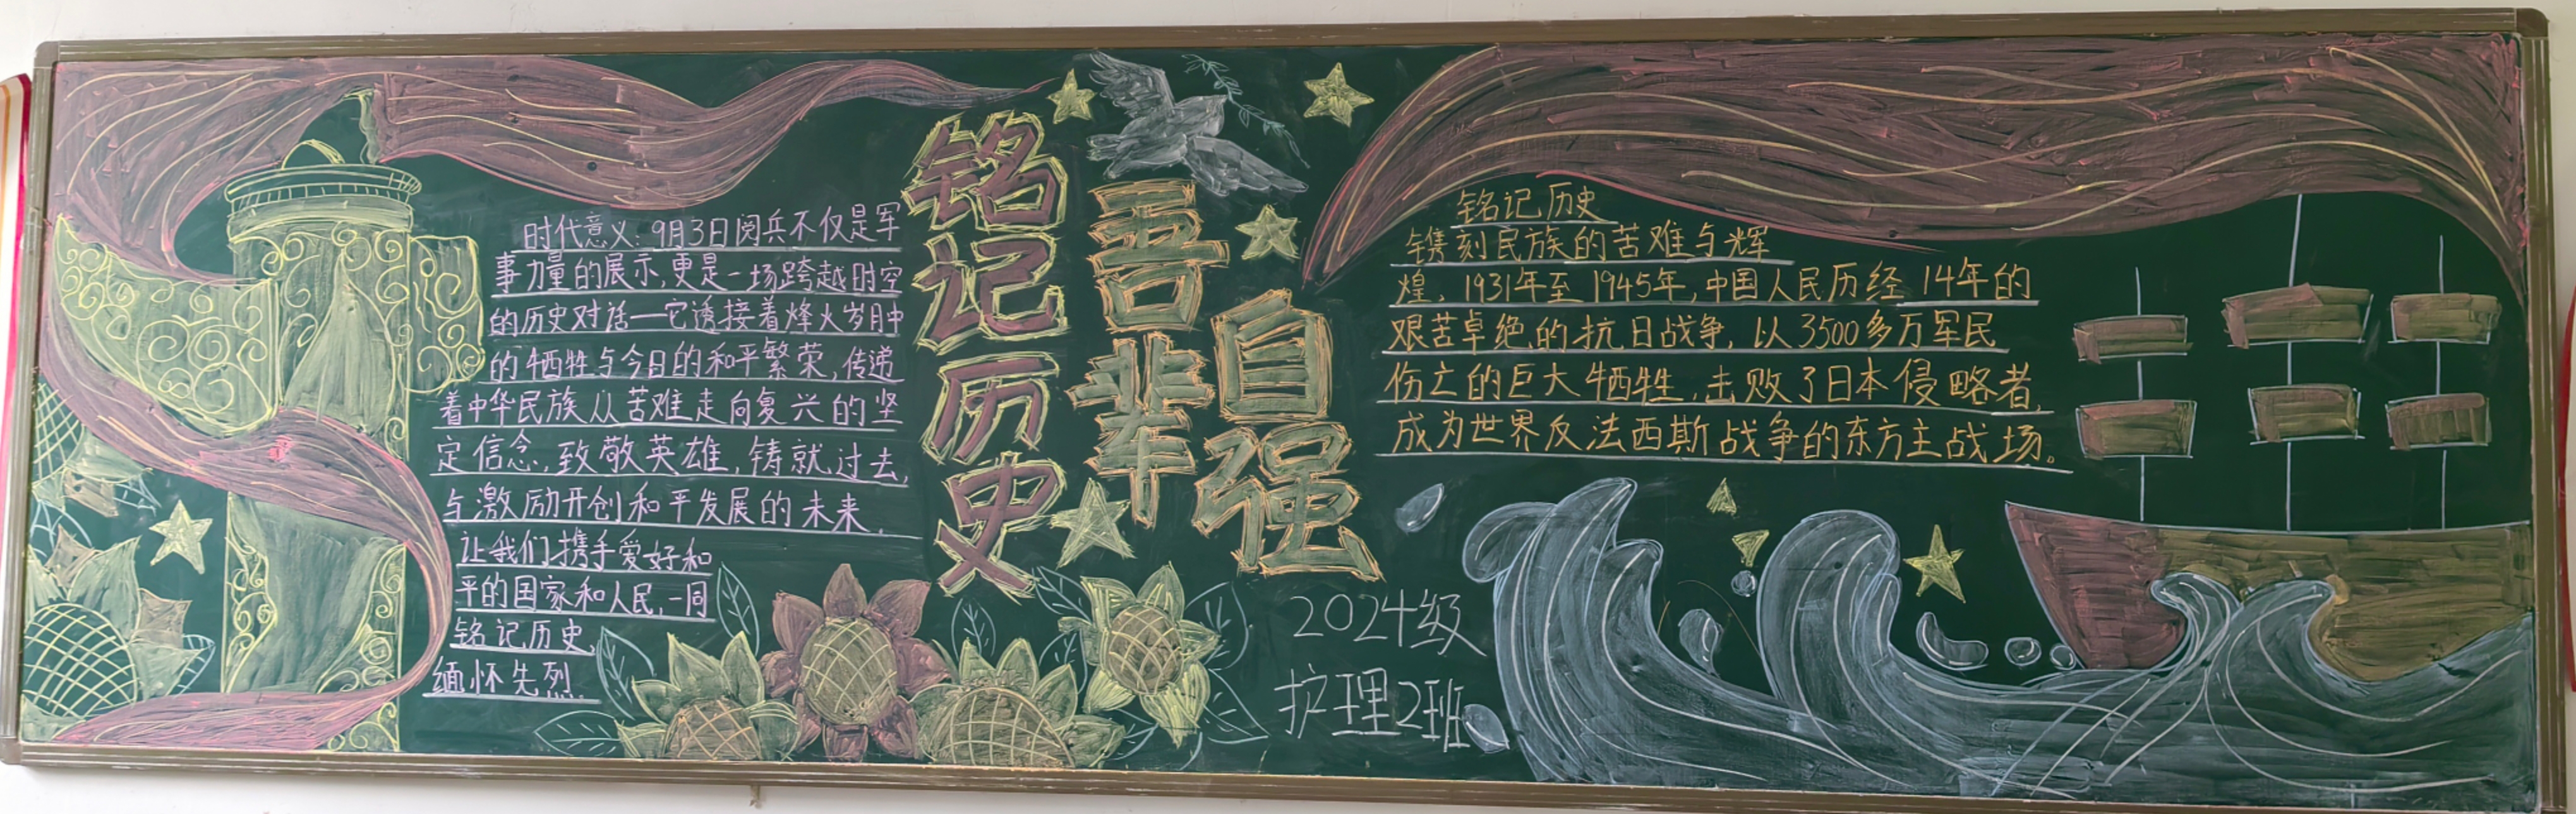 时代意义：9月3日阅兵不仅是军
事力量的展示，更是一场跨越时空
的历史对话—它透接着烽火岁月中
的牺牲与今日的和平繁荣，传递
着中华民族从苦难走向复兴的坚
定信念，致敬英雄，铸就过去，
与激励开创和平发展的未来，
让我们携手爱好和
平的国家和人民，一同
铭记历史，
缅怀先烈。
铭记历史
吾辈
自强
铭记历史
镌刻民族的苦难与辉
煌，1931年至1945年，中国人民历经14年的
艰苦卓绝的抗日战争，以3500多万军民
伤亡的巨大牺牲，击败了日本侵略者，
成为世界反法西斯战争的东方主战场。
2024级
护理2班